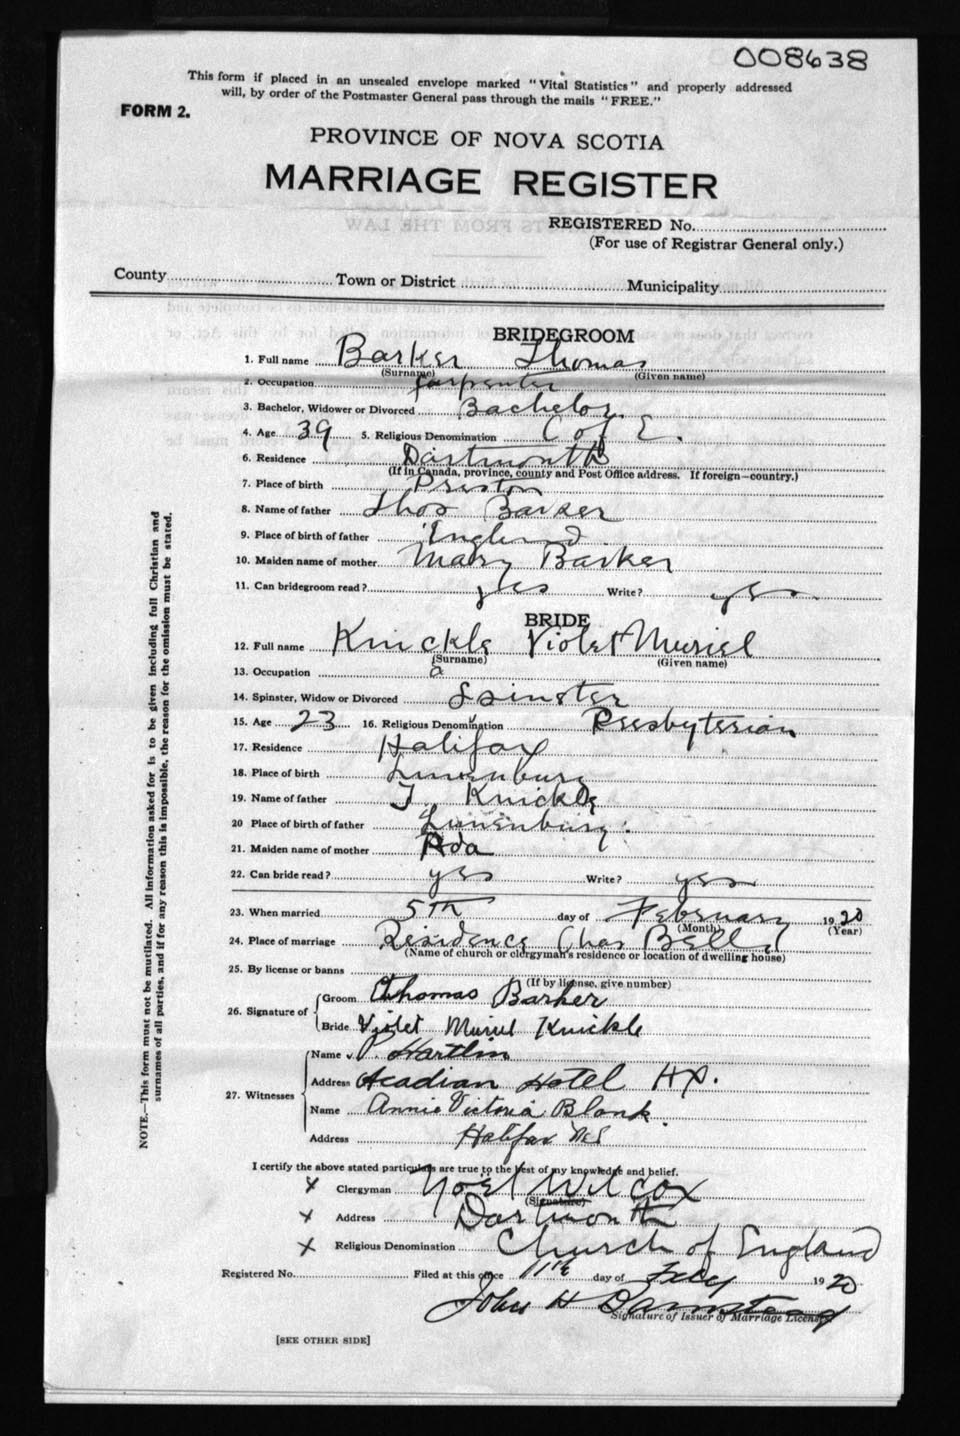 008638
This form if placed in an unsealed envelope marked "Vital Statistics" and properly addressed
will, by order of the Postmaster General pass through the mails "FREE."
FORM 2.
PROVINCE OF NOVA SCOTIA
MARRIAGE REGISTER
REGISTERED No.
(For use of Registrar General only.)
County Town or District Municipality
BRIDEGROOM
1. Full name Barker Thomas
(Surname) (Given name)
2. Occupation Carpenter
3. Bachelor, Widower or Divorced Bachelor
4. Age 39 5. Religious Denomination C of E.
6. Residence Dartmouth
(If in Canada, province, county and Post Office address. If foreign—country.)
7. Place of birth Preston
8. Name of father Thos Barker
9. Place of birth of father England
10. Maiden name of mother Mary Barker
11. Can bridegroom read? yes Write? yes
BRIDE
12. Full name Knickle Violet Muriel
(Surname) (Given name)
13. Occupation a
14. Spinster, Widow or Divorced Spinster
15. Age 23 16. Religious Denomination Presbyterian
17. Residence Halifax
18. Place of birth Lunenburg
19. Name of father Knickle
20 Place of birth of father Lunenburg
21. Maiden name of mother Ada
22. Can bride read? yes Write? yes
23. When married 5th day of February 1920
(Month) (Year)
24. Place of marriage Residence Chas Bell
(Name of church or clergyman's residence or location of dwelling house)
25. By license or banns
(If by license, give number)
26. Signature of Groom Thomas Barker
Bride Violet Muriel Knickle
27. Witnesses Name P. Hartlin
Address Acadian Hotel HX.
Name Annie Victoria Blank
Address Halifax NS
I certify the above stated particulars are true to the best of my knowledge and belief.
X Clergyman Noel Wilcox
(Signature)
X Address Dartmouth
X Religious Denomination Church of England
Registered No. Filed at this office 11th day of Feby 1920
John H Barnstead
Signature of Issuer of Marriage License
[SEE OTHER SIDE]
NOTE.—This form must not be mutilated. All information asked for is to be given including full Christian and
surnames of all parties, and if for any reason this is impossible, the reason for the omission must be stated.